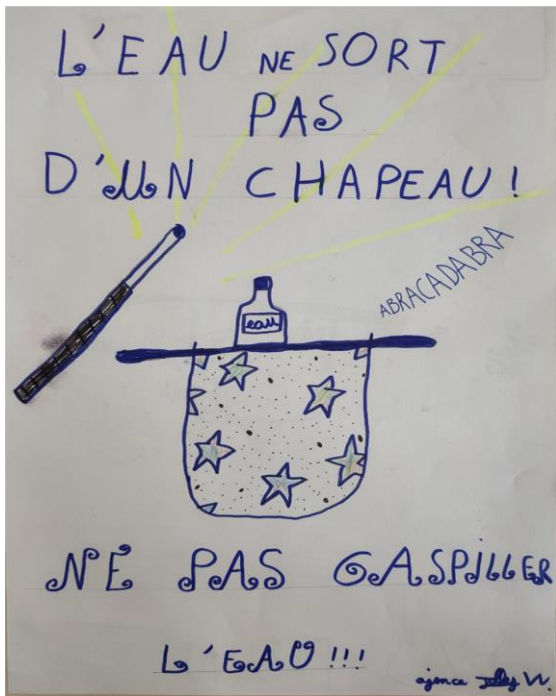 L'EAU NE SORT
PAS
D'UN CHAPEAU !
ABRACADABRA
eau
NE PAS GASPILLER
L'EAU !!!
agence